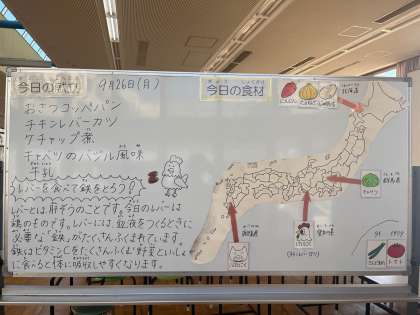 今日の献立
9月26日(月)
おさつコッペパン
チキンレバーカツ
ケチャップ煮
キャベツのバジル風味
牛乳
レバーを食べて鉄をとろう!
レバーとは肝ぞうのことです。今日のレバーは
鶏のものです。レバーには、血液をつくるときに
必要な「鉄」がたくさんふくまれています。
鉄はビタミンCをたくさんふくむ野菜といっしょ
に食べると体に吸収しやすくなります。
きょう しょくざい
今日の食材
にんじん
たまねぎ
北海道
キャベツ
群馬県
トマト